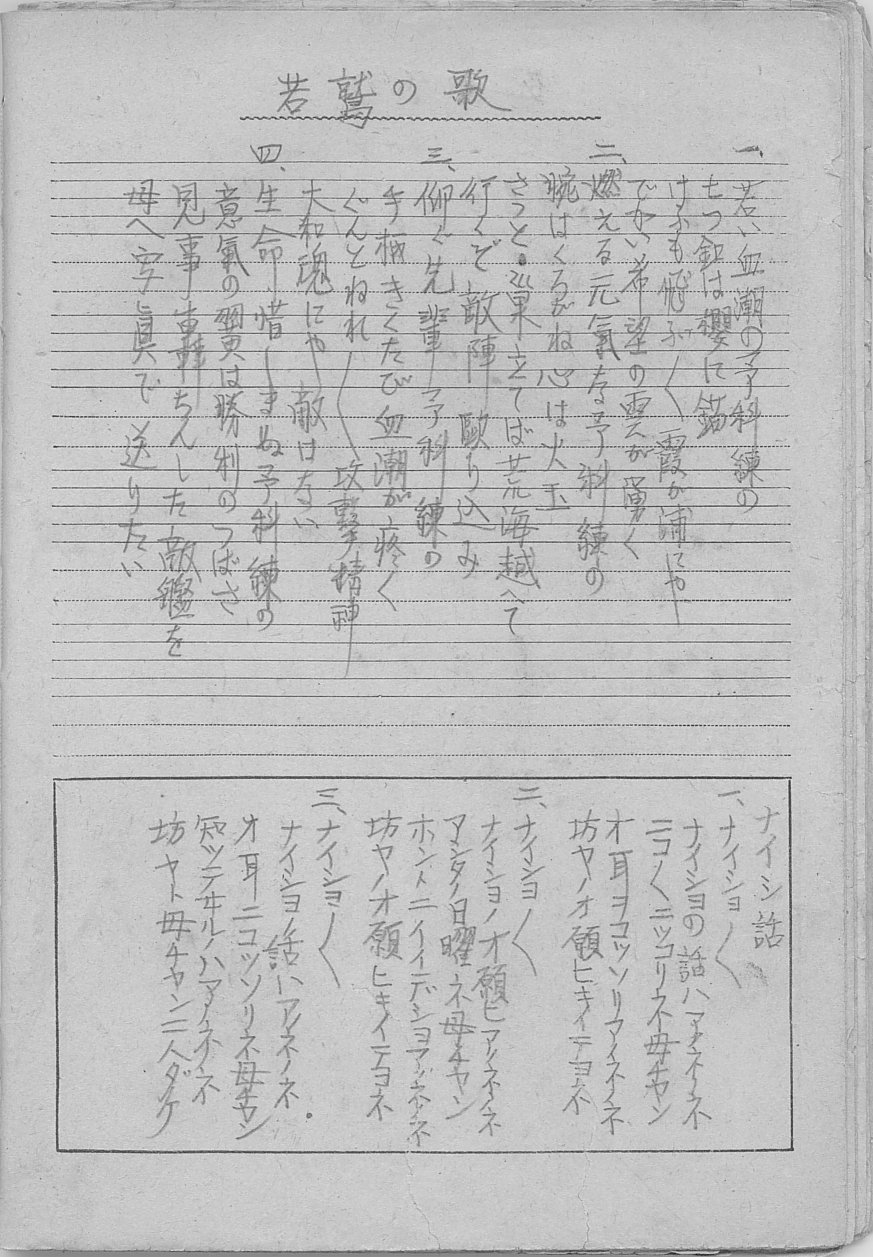 若鷲の歌
一、若い血潮の予科練の
七つ釦は櫻に錨
けふも飛ぶ〱霞が浦にや
でかい希望の雲が湧く
二、燃える元氣な予科練の
腕はくろがね心は火玉
さつと巣立てば荒海越へて
行くぞ敵陣歐り込み
三、仰ぐ先輩予科練の
手柄きくたび血潮が疼く
ぐんとねれ〱攻撃精神
大和魂にや敵はない
四、生命惜しまぬ予科練の
意氣の翼は勝利のつばさ
見事轟ちんした敵鑑を
母へ寫眞で送りたい
ナイシ話
一、ナイショ〱
ナイショの話ハアノネノネ
ニコ〱ニッコリネ母チャン
オ耳ヲコッソリアノネノネ
坊ヤノオ願ヒキイテヨネ
二、ナイショ〱
ナイショノオ願ヒアノネノネ
アシタノ日曜ネ母チャン
ホントニイイデショアノネノネ
坊ヤノオ願ヒキイテヨネ
三、ナイショ〱
ナイショノ話ハアノネノネ
オ耳ニコッソリネ母チャン
知ッテヰルノハアノネノネ
坊ヤト母チャン二人ダケ